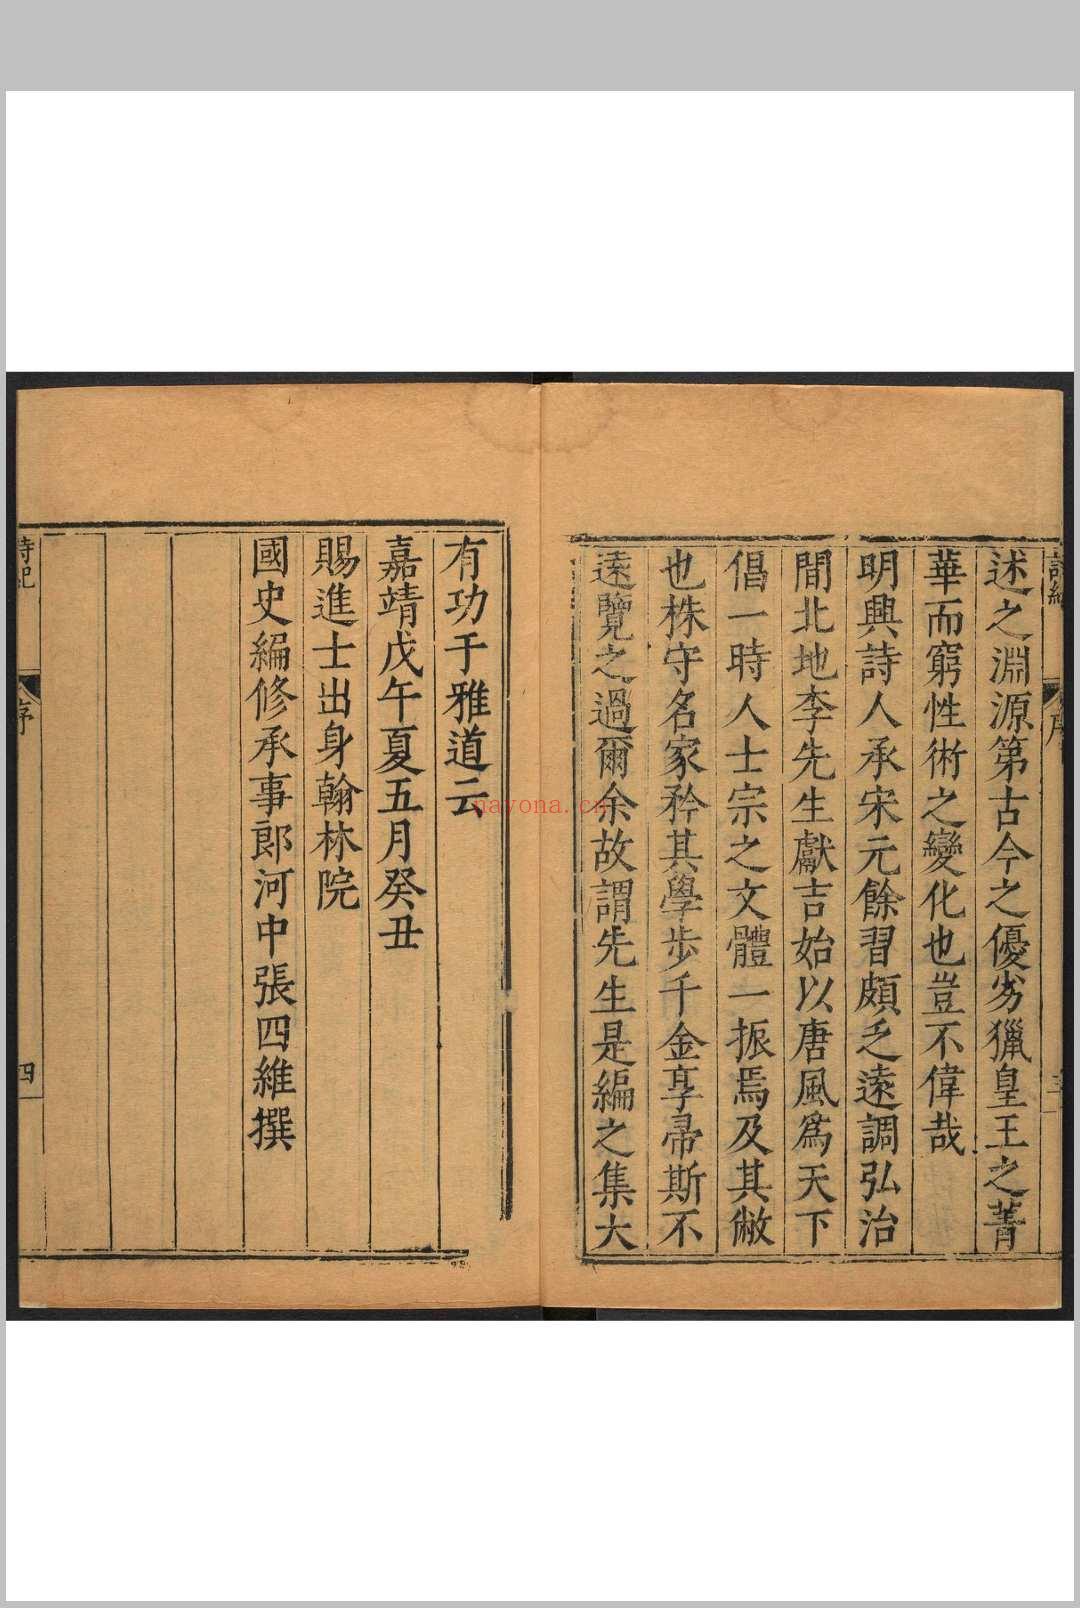 述之淵源第古今之優劣獵皇王之菁
華而窮性術之變化也豈不偉哉
明興詩人承宋元餘習頗乏遠調弘治
間北地李先生獻吉始以唐風爲天下
倡一時人士宗之文體一振焉及其敝
也株守名家矜其學步千金享帚斯不
遠覽之過爾余故謂先生是編之集大
有功于雅道云
嘉靖戊午夏五月癸丑
賜進士出身翰林院
國史編修承事郎河中張四維撰
詩紀 序 四
nayona.cn